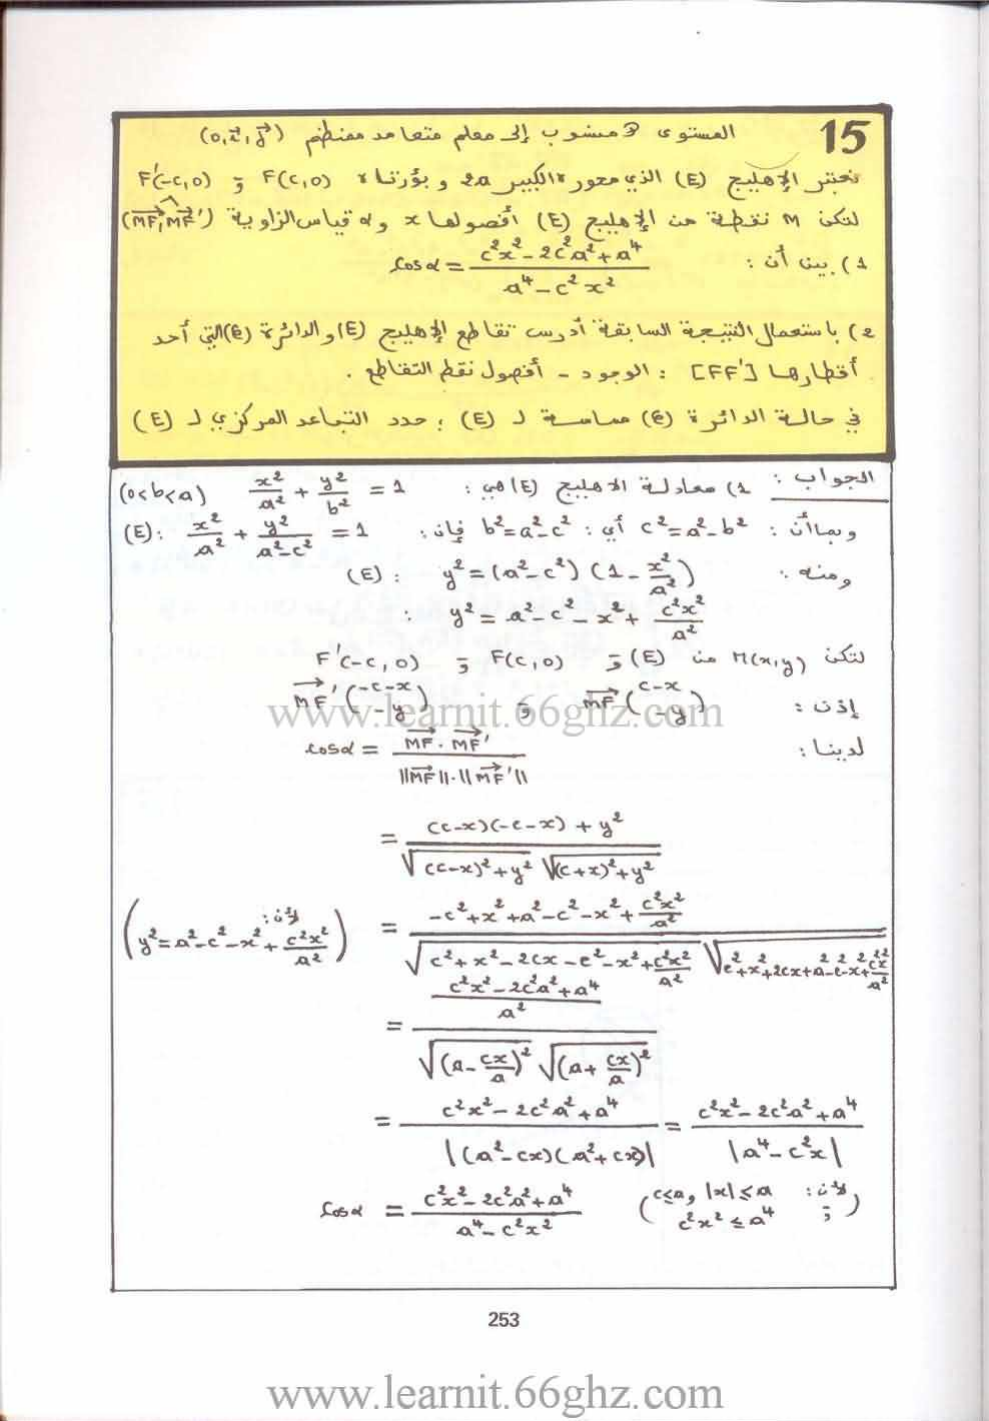 15
المستوى P منسوب إلى معلم متعامد ممنظم (o, i⃗, j⃗)
نعتبر الإهليج (E) الذي محوره الكبير 2a و بؤرتاه F(c,0) و F'(-c,0)
لتكن M نقطة من الإهليج (E) أفصولها x و α قياس الزاوية (MF⃗, MF⃗')
1) بين أن : cosα = (c²x² - 2c²a² + a⁴) / (a⁴ - c²x²)
2) باستعمال النتيجة السابقة أدرس تقاطع الإهليج (E) والدائرة (C) التي أحد
أقطارها [FF'] : الوجود - أفصول نقط التقاطع .
في حالة الدائرة (C) مماسة لـ (E) ; حدد التباعد المركزي لـ (E)
الجواب : 1) معادلة الاهليج (E) هي : x²/a² + y²/b² = 1 (0<b<a)
وبماأن : c² = a² - b² أي : b² = a² - c² فإن : (E): x²/a² + y²/(a²-c²) = 1
ومنه : (E) : y² = (a² - c²)(1 - x²/a²)
: y² = a² - c² - x² + c²x²/a²
لتكن M(x,y) من (E) و F(c,0) و F'(-c,0)
إذن : MF⃗(c-x, -y) و MF⃗'(-c-x, -y)
لدينا : cosα = (MF⃗ . MF⃗') / (||MF⃗||.||MF⃗'||)
= ((c-x)(-c-x) + y²) / (√((c-x)²+y²) √((c+x)²+y²))
= (-c²+x²+a²-c²-x²+c²x²/a²) / (√(c²+x²-2cx-c²-x²+c²x²/a²) √(c²+x²+2cx+a²-c²-x²+c²x²/a²)) (لأن : y² = a²-c²-x²+c²x²/a²)
= ((c²x² - 2c²a² + a⁴)/a²) / (√((a - cx/a)²) √((a + cx/a)²))
= (c²x² - 2c²a² + a⁴) / |(a²-cx)(a²+cx)| = (c²x² - 2c²a² + a⁴) / |a⁴ - c²x|
cosα = (c²x² - 2c²a² + a⁴) / (a⁴ - c²x²) (لأن : |x|≤a و c≤a ; c²x² ≤ a⁴)
253
www.learnit.66ghz.com
www.learnit.66ghz.com